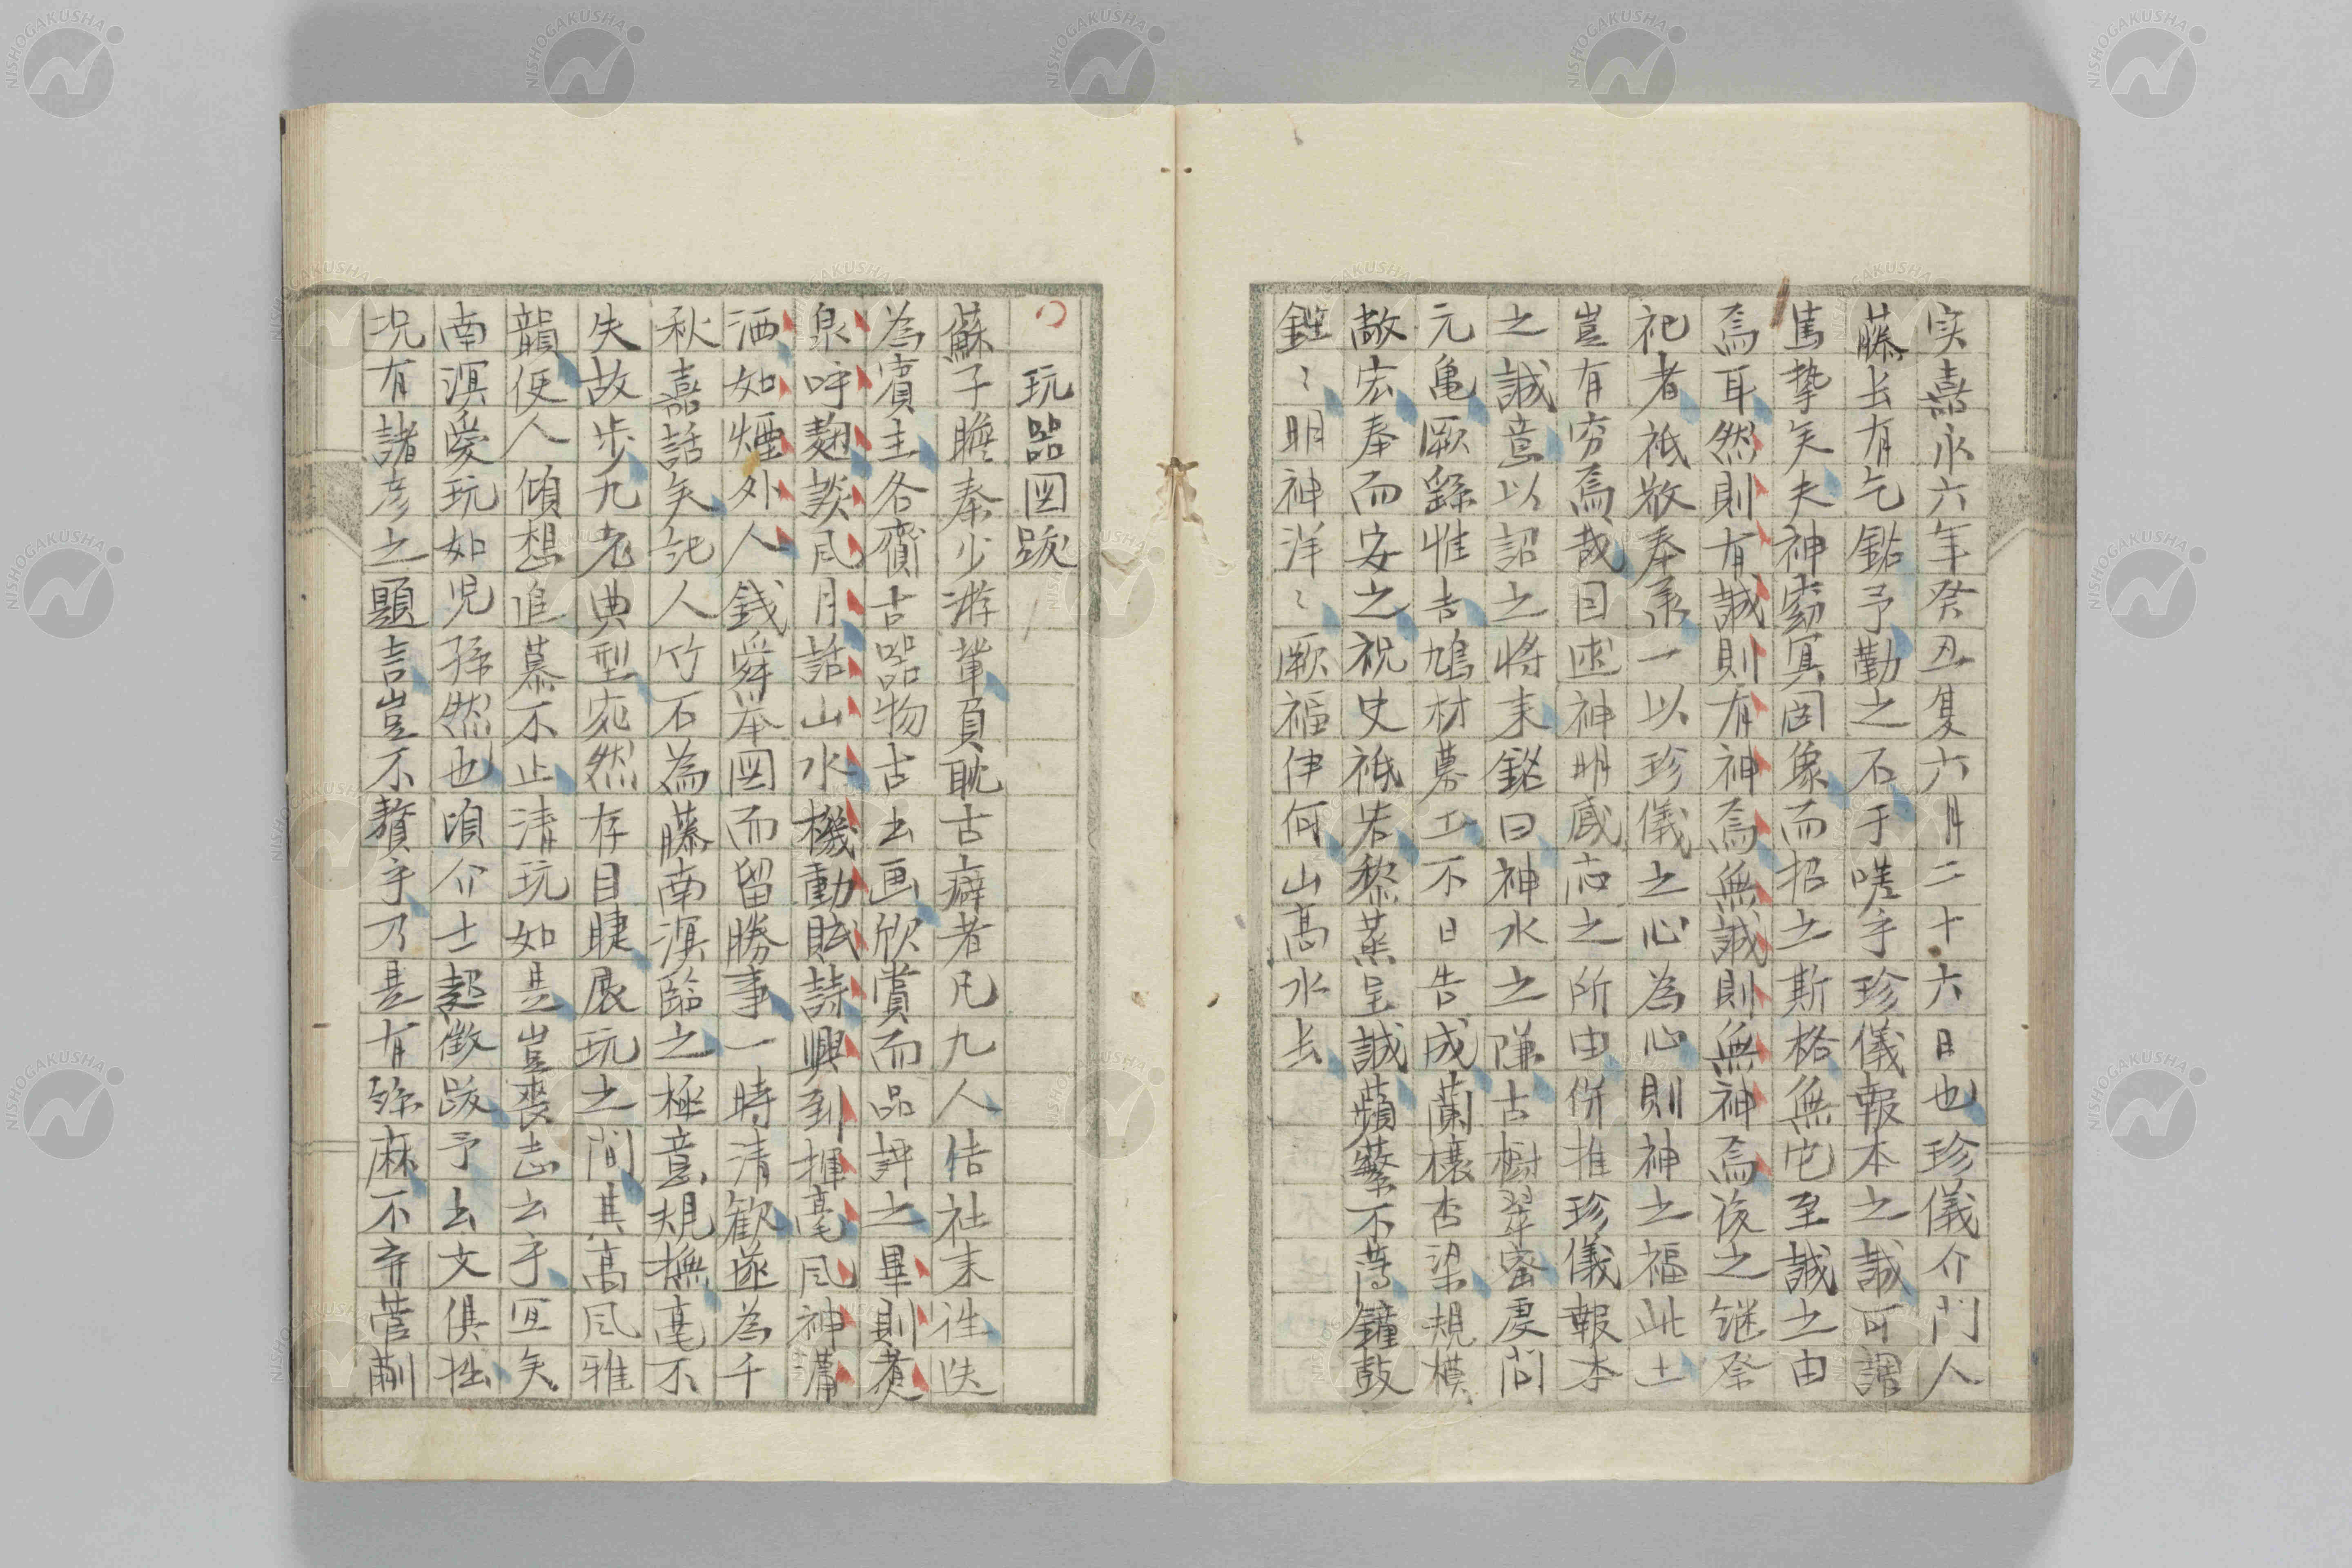 実嘉永六年癸丑夏六月二十六日也珍儀介門人
藤長有乞銘予勤之石于嗟乎珍儀報本之誠可謂
篤摯矣夫神窈冥固象而招之斯格無它至誠之由
焉耳然則有誠則有神焉無誠則無神焉後之継祭
祀者祇敬奉承一以珍儀之心為心則神之福此土
豈有窮焉哉因述神明感応之所由併推珍儀報本
之誠意以詔之将来銘曰神水之隣古樹翠蜜爰問
元亀厥繇惟吉鳩材募工不日告成蘭橑杏梁規模
敞宏奉而安之祝史祗若黎蒸呈誠蘋蘩不薄鐘鼓
鏗〻明神洋〻厥福伊何山高水長
玩器図跋
蘇子瞻秦少游輩負耽古癖者凡九人佸社来往迭
為賓主各齎古器物古书画欣賞而品評之畢則煮
泉呼麹談風月話山水機動賦詩興到揮毫風神瀟
洒如煙外人銭舜挙図而留勝事一時清歓遂為千
秋嘉話矣記人竹石為藤南溟臨之極意規撫毫不
失故步九老典型宛然存目睫展玩之間其高風雅
韻使人傾想追慕不止清玩如是豈喪志云乎宜矣
南溟愛玩如児孫然也頃介士起徴跋予予书文倶拙
况有諸彦之題言豈不贅乎乃是有絲麻不弃菅蒯